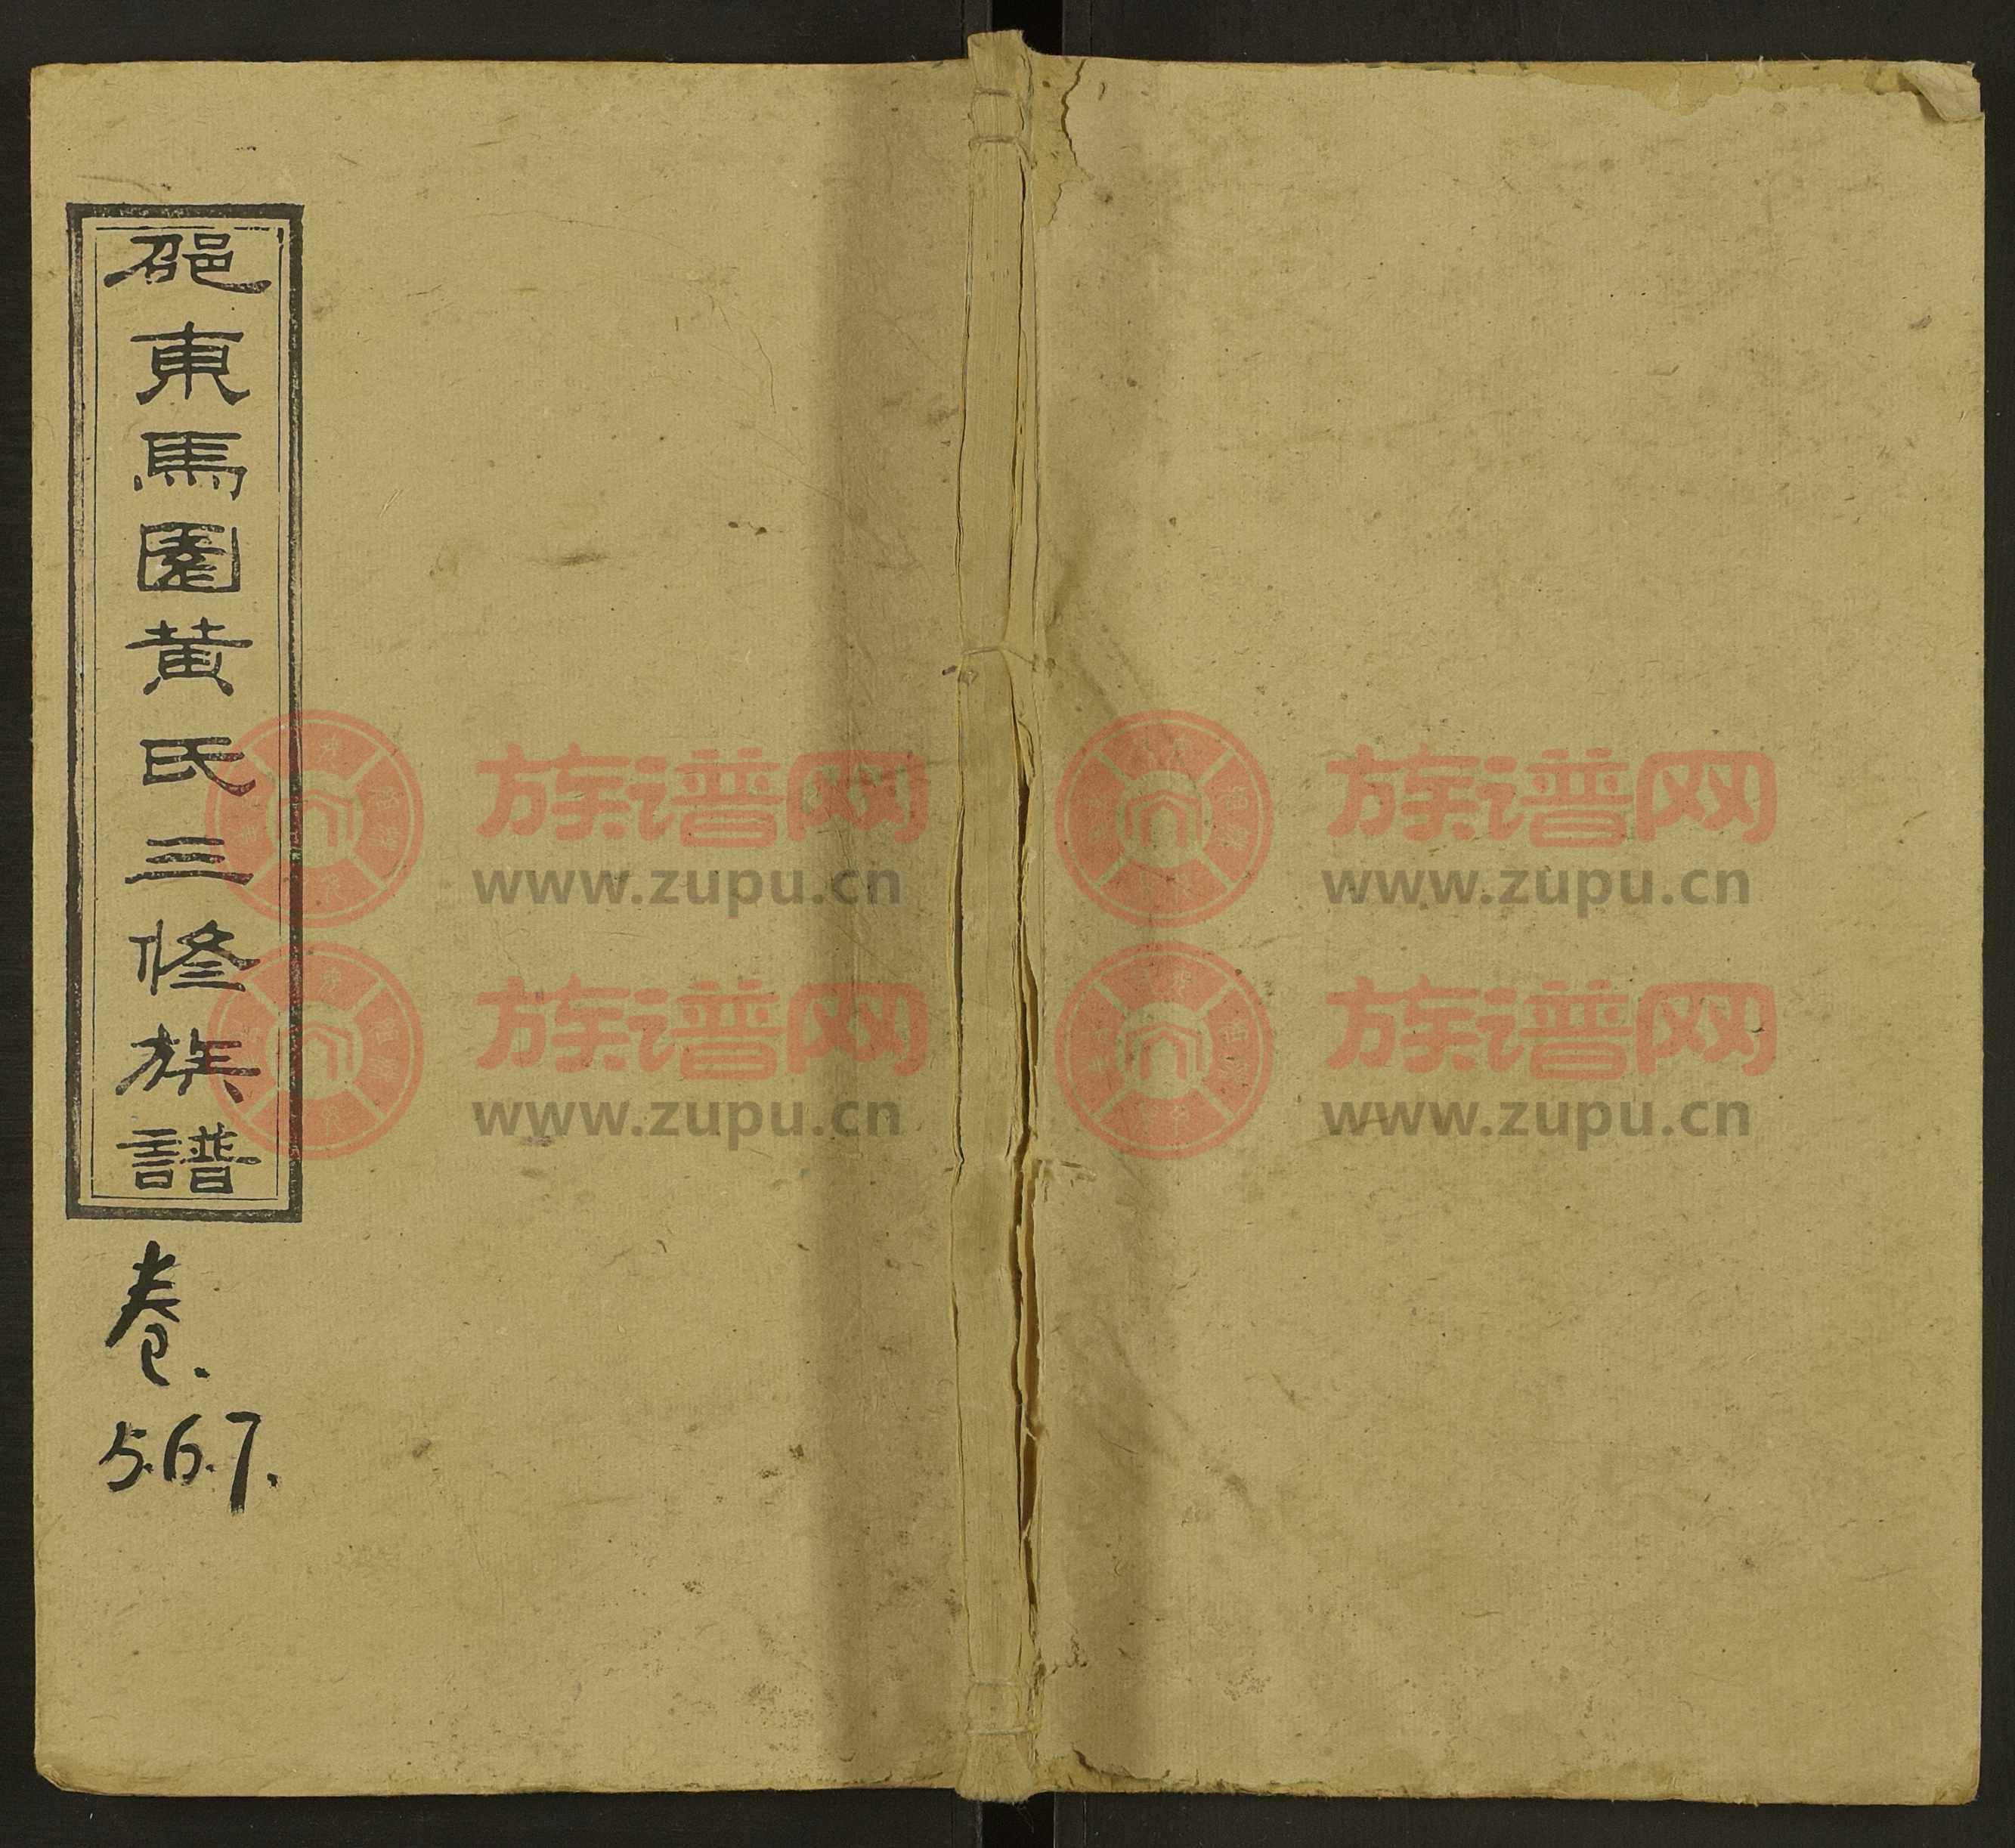 邵東馬園黃氏三修族譜
卷.
5.6.7.
族谱网
www.zupu.cn
族谱网
www.zupu.cn
族谱网
www.zupu.cn
族谱网
www.zupu.cn